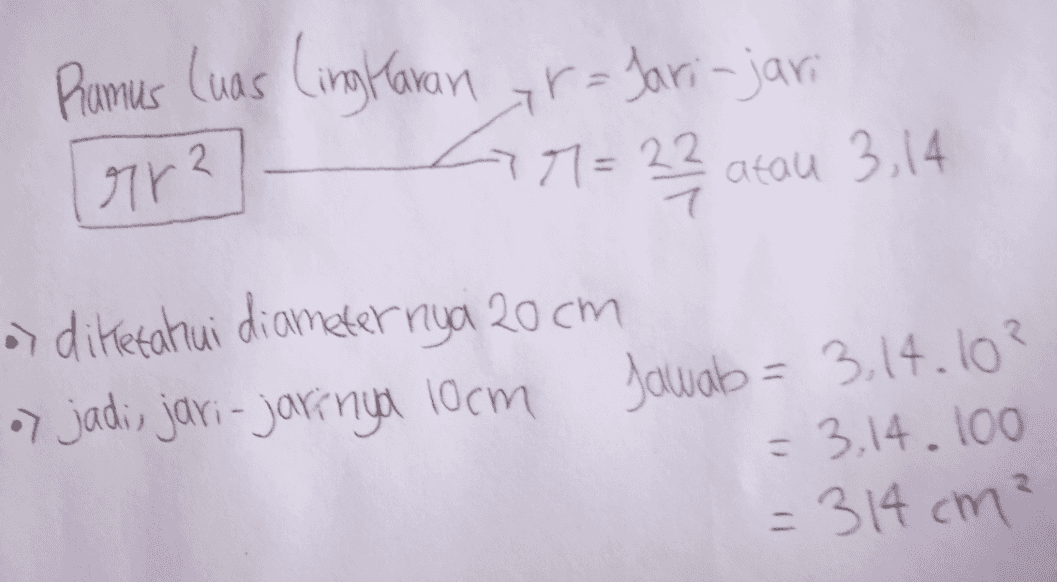 Rumus Luas Lingkaran
r = Jari-jari
πr²
π = 22/7 atau 3,14
diketahui diameternya 20 cm
jadi, jari-jarinya 10cm
Jawab = 3,14.10²
= 3,14.100
= 314 cm²